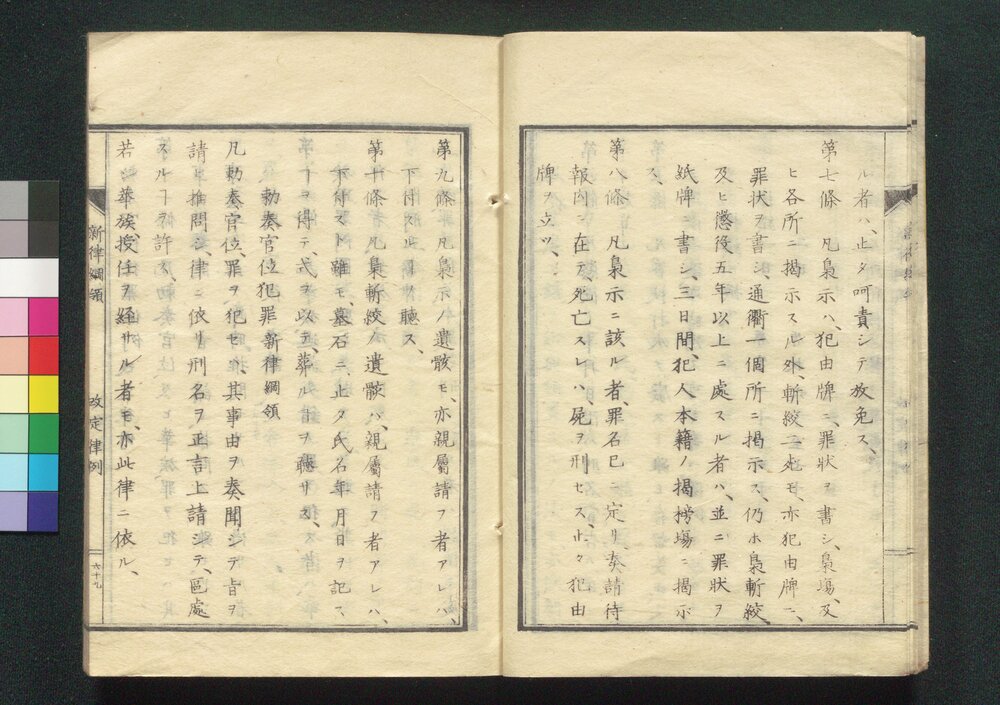 ル者ハ、止タ呵責シテ放免ス、
第七條　凡梟示ハ、犯由牌ニ、罪狀ヲ書シ、梟場、及
ヒ各所ニ揭示スル外、斬絞ニ處モ、亦犯由牌ニ、
罪狀ヲ書シ、通衢一個所ニ揭示ス、仍ホ梟斬絞、
及ヒ懲役五年以上ニ處スル者ハ、並ニ罪狀ヲ
紙牌ニ書シ、三日間、犯人本籍ノ揭榜場ニ揭示
ス、
第八條　凡梟示ニ該ル者、罪名已ニ定リ、奏請待
報內ニ在テ、死亡スレハ、屍ヲ刑セス、止タ犯由
牌ヲ立ツ、
第九條　凡梟示ノ遺骸モ、亦親屬請フ者アレハ、
下付スルヿヲ聽ス、
第十條　凡梟斬絞ノ遺骸ハ、親屬請フ者アレハ、
下付スト雖モ、墓石ニ、止タ氏名年月日ヲ記ス
ヿヲ得テ、式ヲ以テ葬ルヿヲ聽サス、
勅奏官位犯罪新律綱領
凡勅奏官位、罪ヲ犯セハ、其事由ヲ奏聞シテ旨ヲ
請ヒ推問シ、律ニ依リ刑名ヲ正言上請シテ、區處
スルヿヲ許ス、
若シ華族、授任ヲ經サル者モ、亦此律ニ依ル、
新律綱領
改定律例
六十九